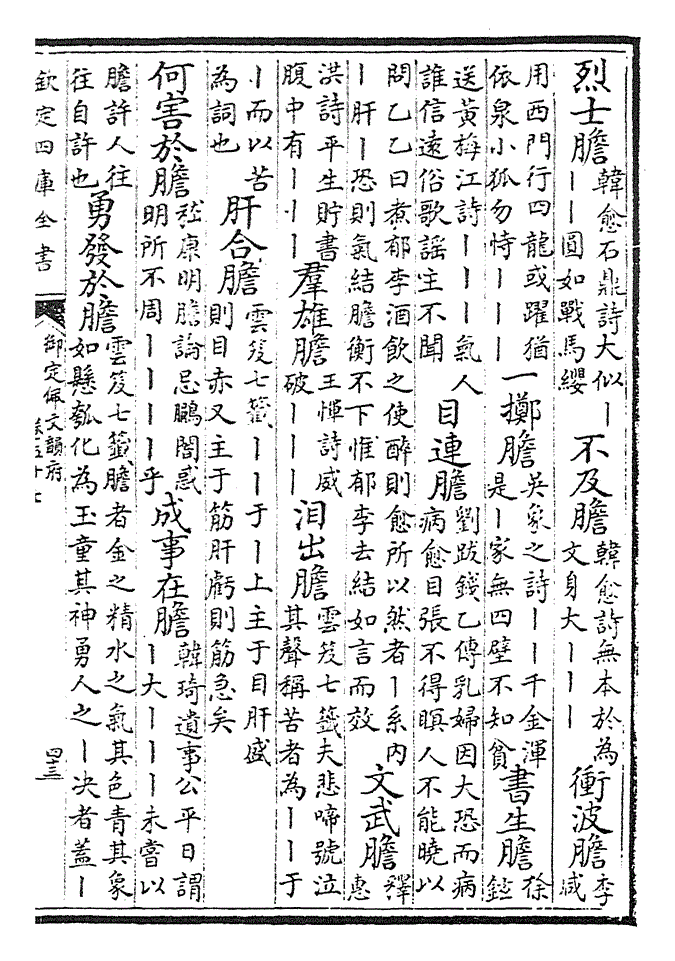 烈士膽 韓愈石鼎詩大似丨
丨丨圓如戰馬纓 不及膽 韓愈詩無本於為
文身大丨丨丨 衝波膽 李
咸
用西門行四龍或躍猶
依泉小狐勿恃丨丨丨 一擲膽 吳象之詩丨丨千金渾
是丨家無四壁不知貧 書生膽 徐
鉉
送黃梅江詩丨丨丨氣人
誰信遠俗歌謠主不聞 目連膽 劉跂錢乙傳乳婦因大恐而病
病愈目張不得瞑人不能曉以
問乙乙曰煮郁李酒飲之使醉則愈所以然者丨系内
丨肝丨恐則氣結膽衡不下惟郁李去結如言而效 文武膽 釋
惠
洪詩平生貯書
腹中有丨丨丨 羣雄膽 王惲詩威
破丨丨丨 泪出膽 雲笈七籤夫悲啼號泣
其聲稱苦者為丨丨于
丨而以苦
為詞也 肝合膽 雲笈七籤丨丨于丨上主于目肝盛
則目赤又主于筋肝虧則筋急矣
何害於膽 嵇康明膽論忌鵩闇惑
明所不周丨丨丨丨乎 成事在膽 韓琦遺事公平日謂
丨大丨丨丨未嘗以
膽許人往
往自許也 勇發於膽 雲笈七籤膽者金之精水之氣其色青其象
如懸瓠化為玉童其神勇人之丨决者蓋丨
欽定四庫全書
御定佩文韻府
卷五十七
四三